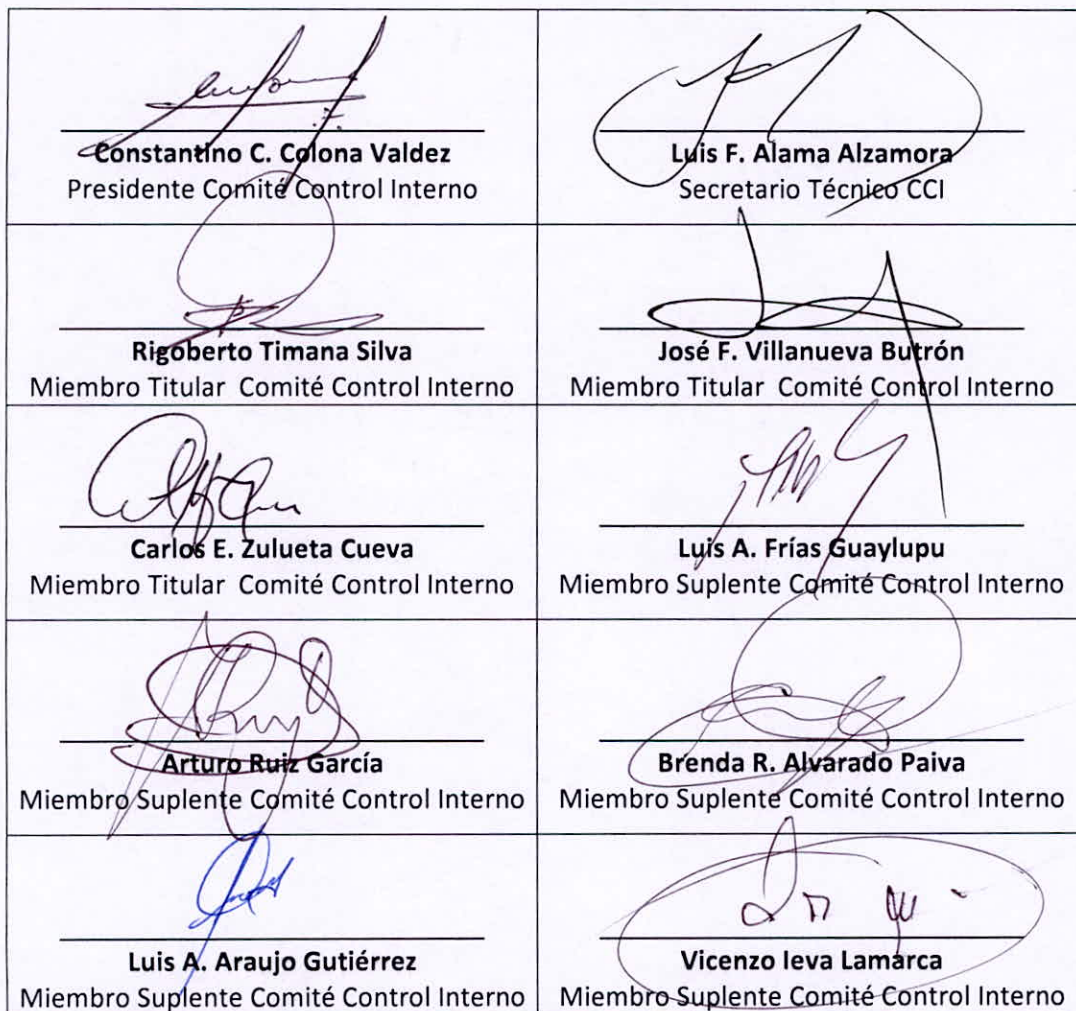 Constantino C. Colona Valdez
Presidente Comité Control Interno
Luis F. Alama Alzamora
Secretario Técnico CCI
Rigoberto Timana Silva
Miembro Titular Comité Control Interno
José F. Villanueva Butrón
Miembro Titular Comité Control Interno
Carlos E. Zulueta Cueva
Miembro Titular Comité Control Interno
Luis A. Frías Guaylupu
Miembro Suplente Comité Control Interno
Arturo Ruiz García
Miembro Suplente Comité Control Interno
Brenda R. Alvarado Paiva
Miembro Suplente Comité Control Interno
Luis A. Araujo Gutiérrez
Miembro Suplente Comité Control Interno
Vicenzo Ieva Lamarca
Miembro Suplente Comité Control Interno